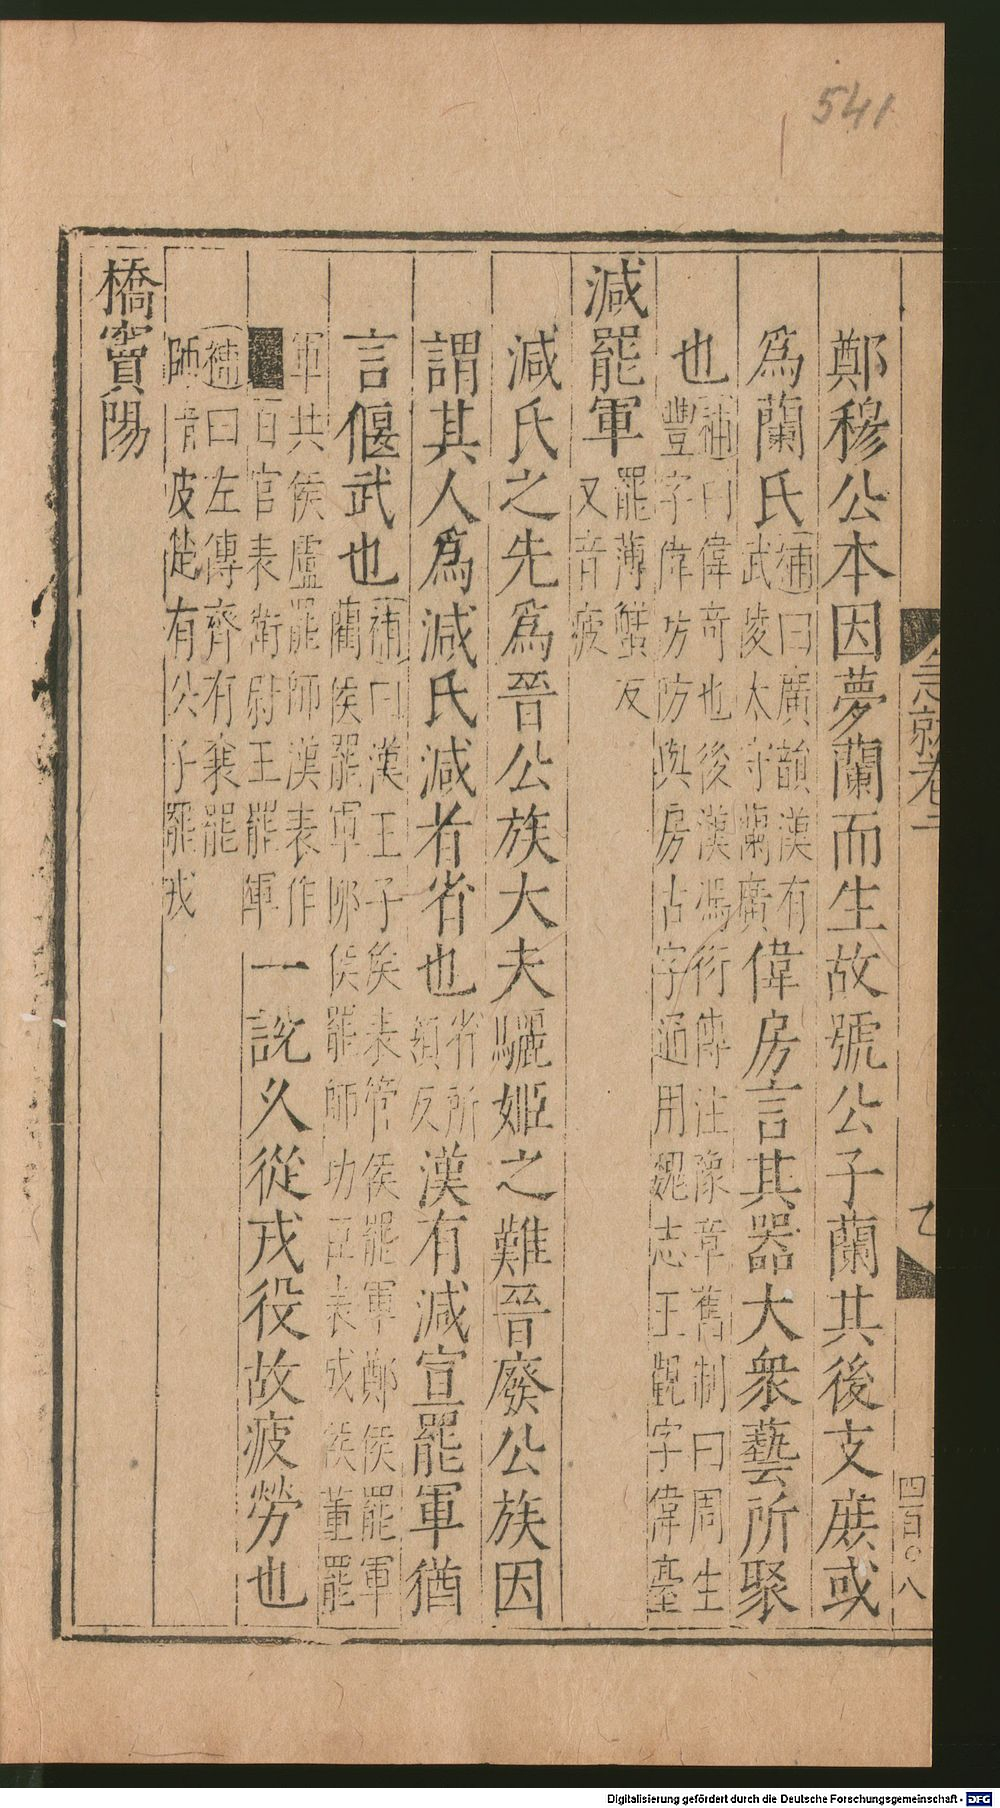 541
急就卷二
七
四百〇八
鄭穆公本因夢蘭而生故號公子蘭其後支庶或
爲蘭氏
補曰廣韻漢有
武陵太守蘭廣
偉房言其器大衆藝所聚
也
補曰偉奇也後漢馮衍傳注豫章舊制曰周生
豐字偉防防與房古字通用魏志王觀字偉臺
減罷軍
罷薄蟹反
又音疲
減氏之先爲晉公族大夫驪姬之難晉廢公族因
謂其人爲減氏減者省也
省所
領反
漢有減宣罷軍猶
言偃武也
補曰漢王子矦表管侯罷軍鄭侯罷軍
藺侯罷軍邴侯罷師功臣表成矦董罷
軍共侯盧罷師漢表作
百官表衛尉王罷軍
一説久從戎役故疲勞也
補曰左傳齊有襄罷
師音皮楚有公子罷戎
橋竇陽
Digitalisierung gefördert durch die Deutsche Forschungsgemeinschaft - DFG